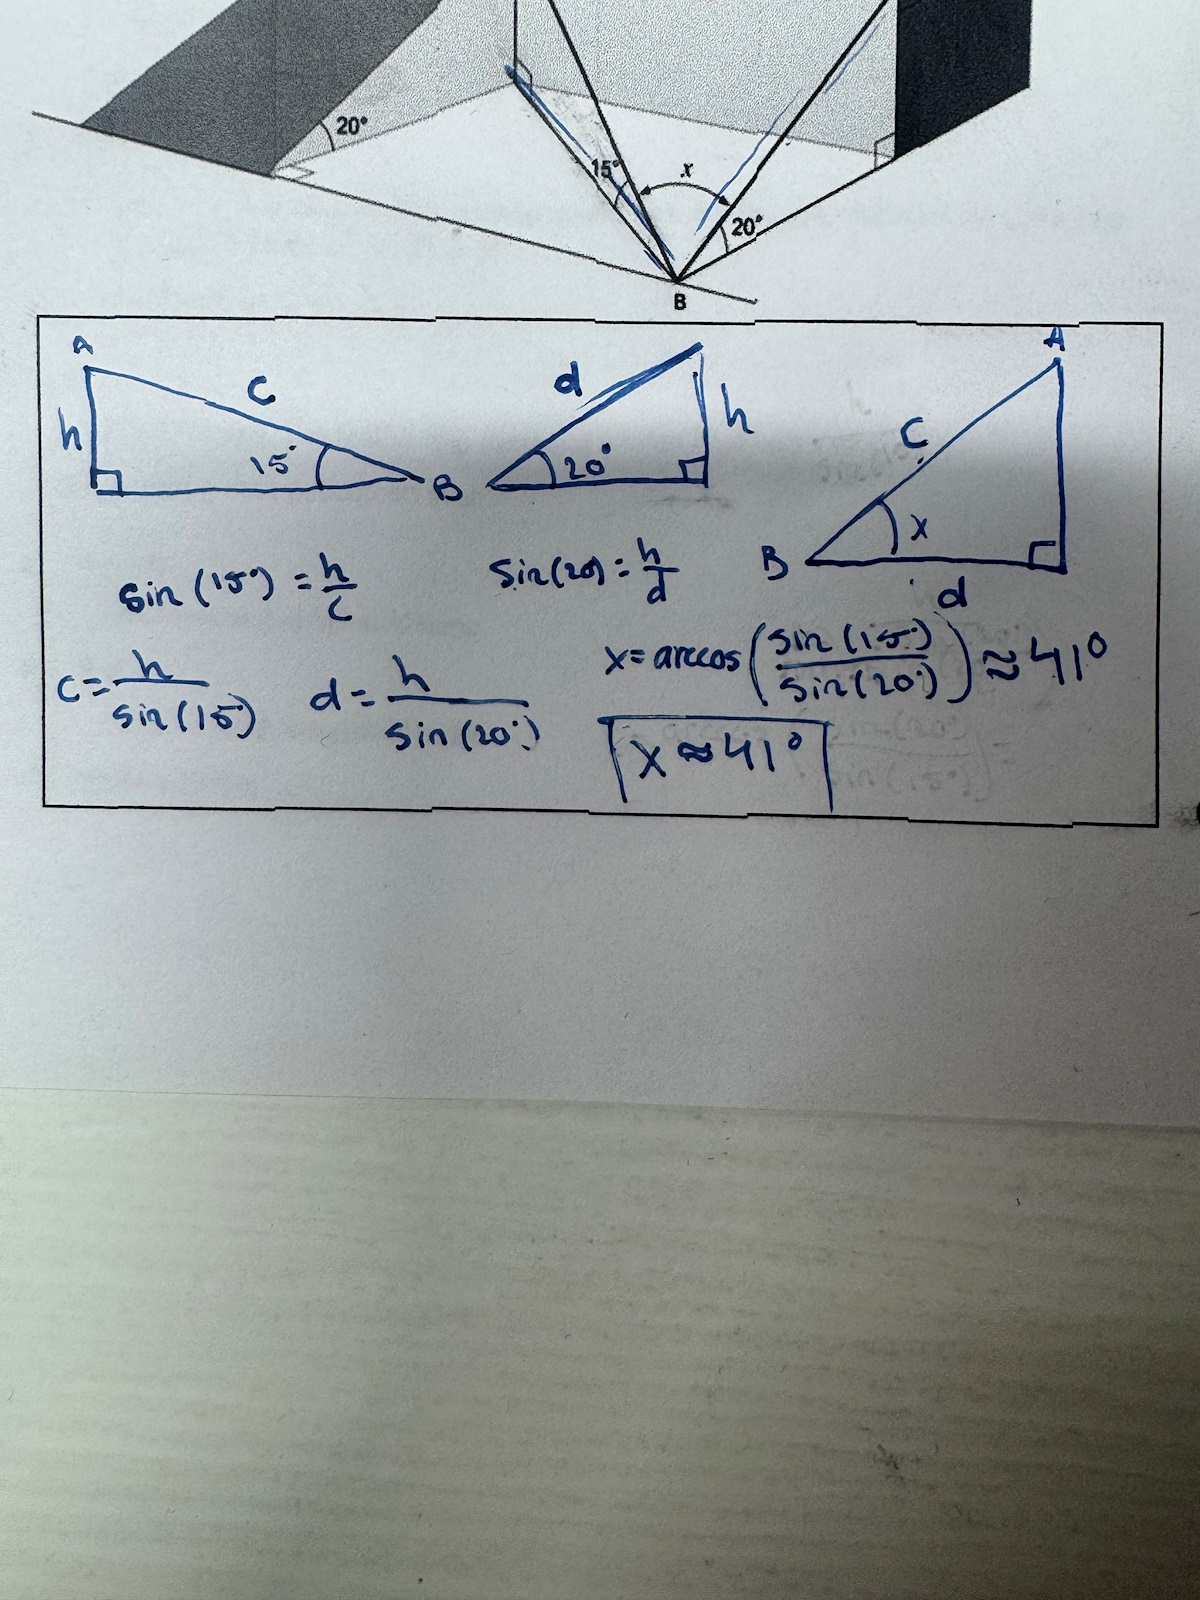 20°
15°
x
20°
B
A
C
h
15°
B
d
h
20°
A
C
x
B
d
sin (15°) = h/c
sin(20) = h/d
c = h/sin(15°)
d = h/sin(20°)
x = arccos (sin(15°)/sin(20°)) ≈ 41°
x ≈ 41°